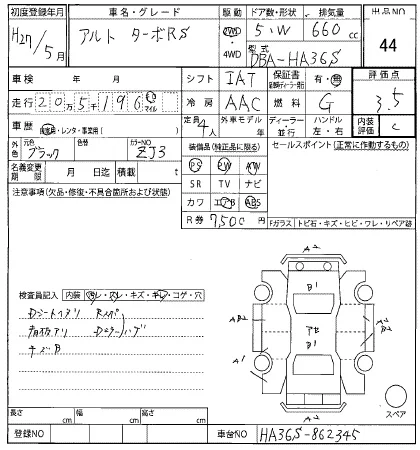 初度登録年月 車名・グレード 駆動 ドア数・形状 排気量 出品NO
H27/5月 アルト ターボRS 2WD・4WD 5・W 660cc 44
型式 DBA-HA36S
車検 年 月 シフト IAT 保証書 有・無 評価点
走行 20万5千196 km マイル 冷房 AAC 燃料 G 3.5
車歴 自家用・レンタ・事業用( ) 定員 4人 外車モデル 年 ディーラー・並行 ハンドル 左・右 内装評価 C
外色 元色 ブラック 色替 カラーNO ZJ3
装備品(純正品に限る) セールスポイント(正常に作動するもの)
名義変更期限 月 日迄 積載 t
PS SW AW
SR TV ナビ
カワ エアB ABS
R券 7,500円
注意事項(欠品・修復・不具合箇所および状態)
Fガラス トビ石・キズ・ヒビ・ワレ・リペア跡
検査員記入 内装 ヨレ・スレ・キズ・キレ・コゲ・穴
Dシートヘタリ
キズB
A2
B1
AB2
アセ
B
A1
B1
A2
スペア
長さ cm 幅 cm 高さ cm
登録NO 車台NO HA36S-862345